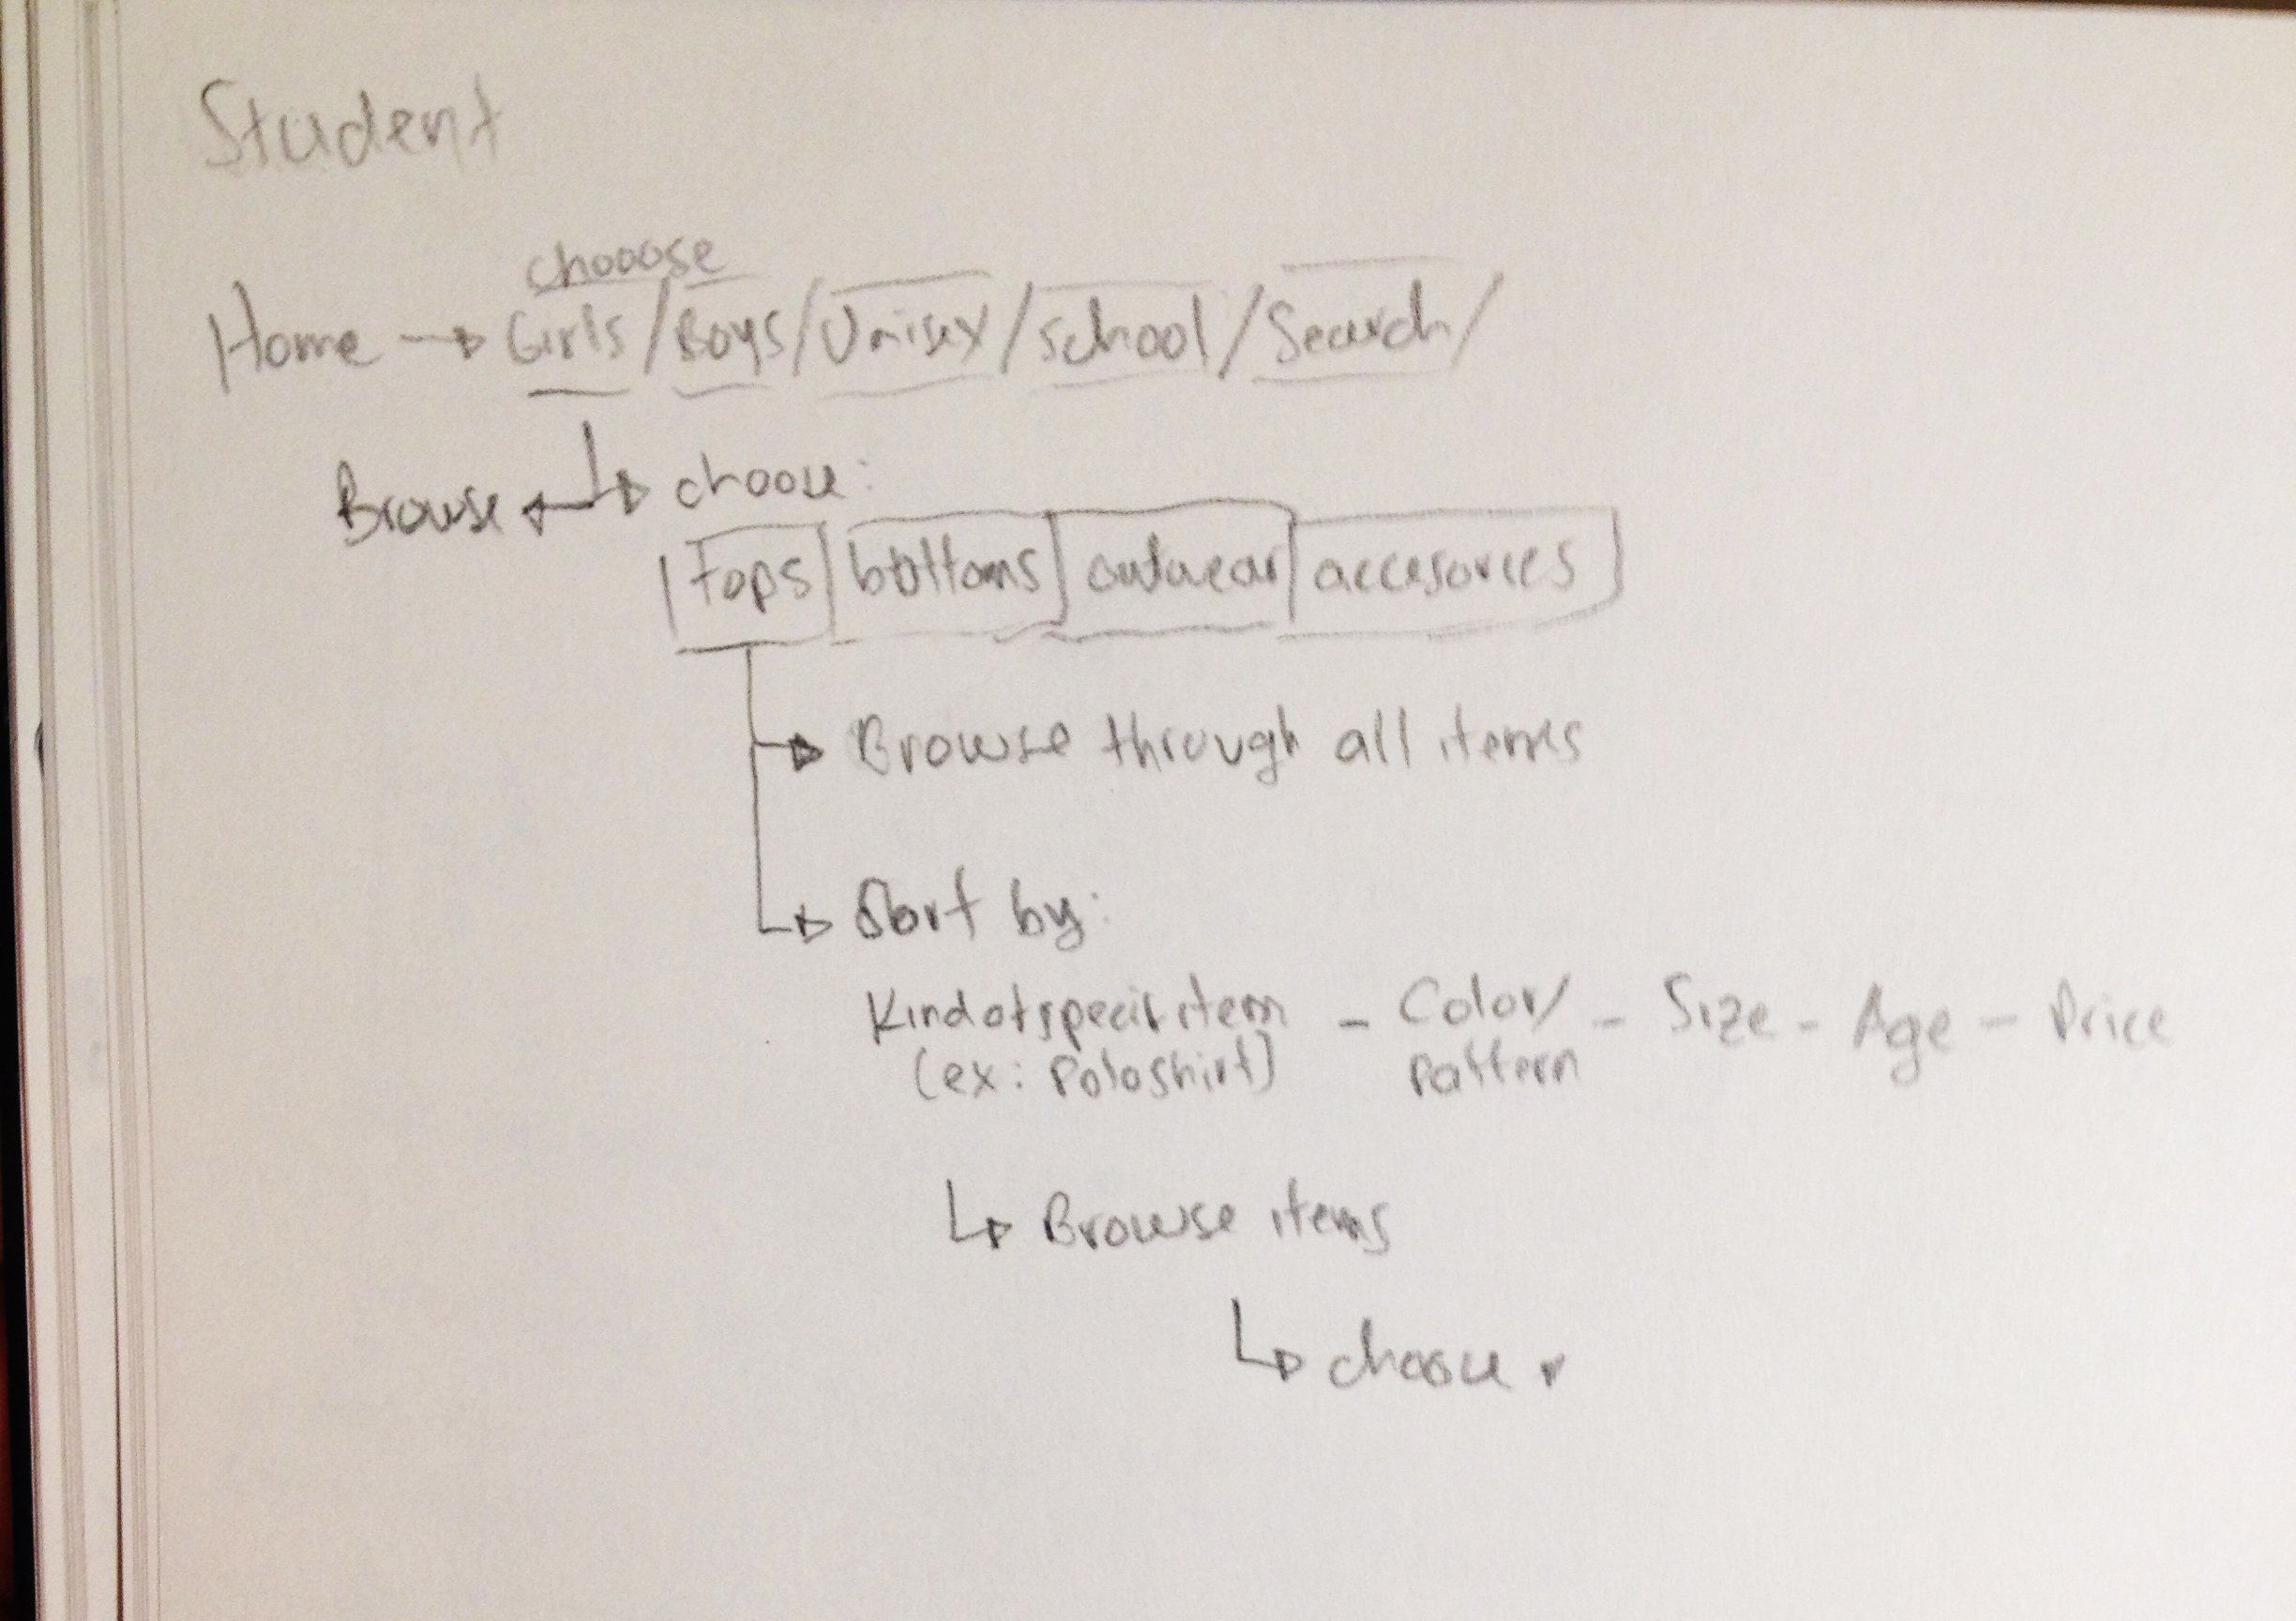 Student
chooose
Home → Girls / Boys / Unisex / School / Search /
Browse ← → choose:
| Tops | bottoms | outwear | accesories |
→ Browse through all items
→ Sort by:
Kind of specif item - Color/ - Size - Age - Price
(ex: Polo shirt) pattern
↳ Browse items
↳ choose